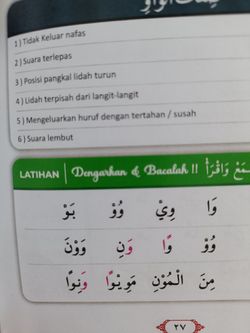 صفات الواو
1) Tidak Keluar nafas
2) Suara terlepas
3) Posisi pangkal lidah turun
4) Lidah terpisah dari langit-langit
5) Mengeluarkan huruf dengan tertahan / susah
6) Suara lembut
LATIHAN | Dengarkan & Bacalah !! وَاقْرَأْ
وَا وِيْ وُوْ بَوْ
وُوْ وًا وَنِ وَوْنَ
مِنَ الْمُوْنِ مَوِيْوًا وَنِوًا
٢٧